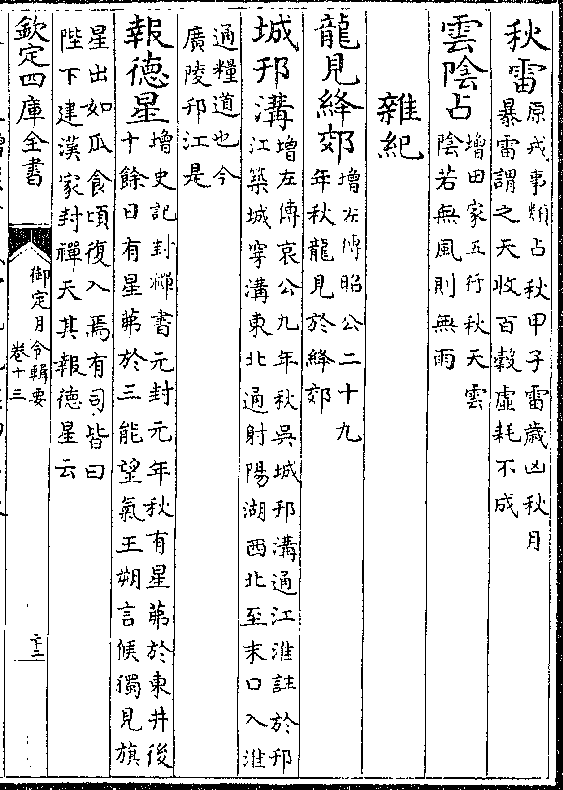 秋雷原戎事類占秋甲子雷歳凶秋月
暴雷謂之天收百穀虛耗不成
雲陰占増田家五行秋天雲
陰若無風則無雨
雜紀
龍見絳郊増左傳昭公二十九
年秋龍見於絳郊
城邗溝増左傳哀公九年秋吳城邗溝通江淮註於邗
江築城穿溝東北通射陽湖西北至末口入淮
通糧道也今
廣陵邗江是
報德星増史記封禪書元封元年秋有星茀於東井後
十餘日有星茀於三能望氣王朔言候獨見旗
星出如瓜食頃復入焉有司皆曰
陛下建漢家封禪天其報德星云
欽定四庫全書
御定月令輯要
卷十三
二十二